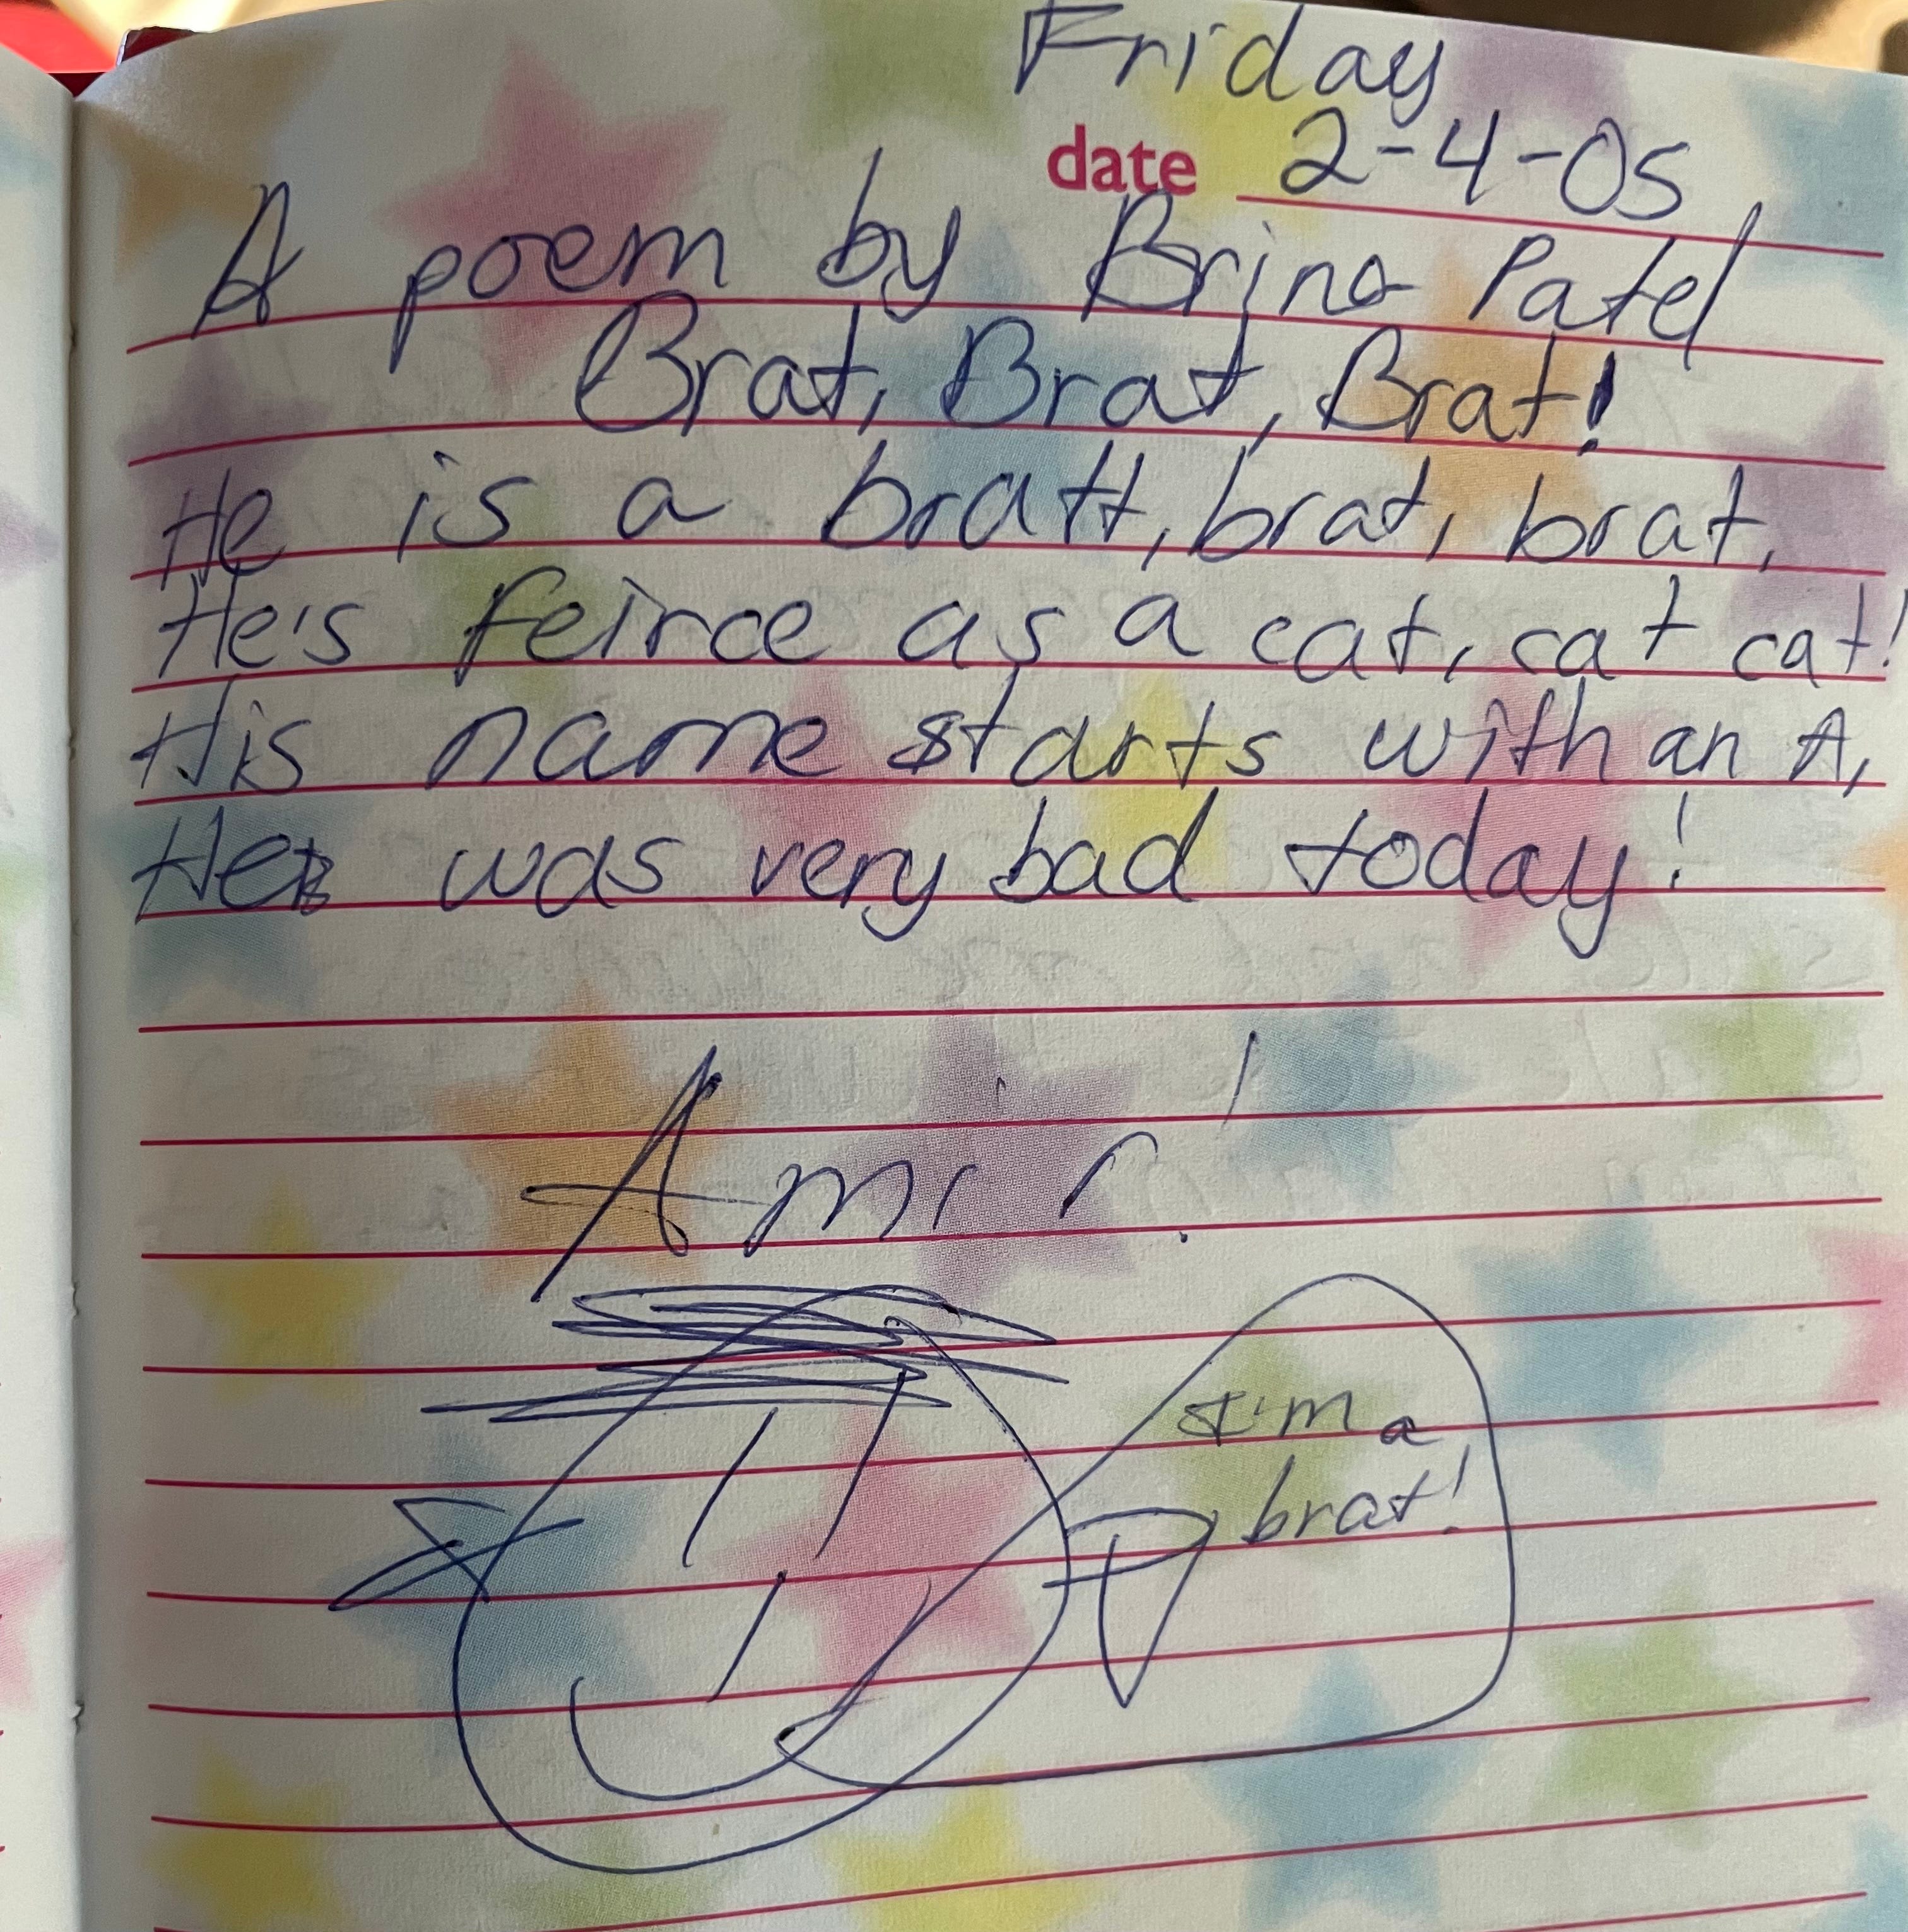 Friday
date 2-4-05
A poem by Brina Patel
Brat, Brat, Brat!
He is a bratt, brat, brat,
He's feirce as a cat, cat cat!
His name starts with an A,
He was very bad today!
Amir!
I'm a
brat!